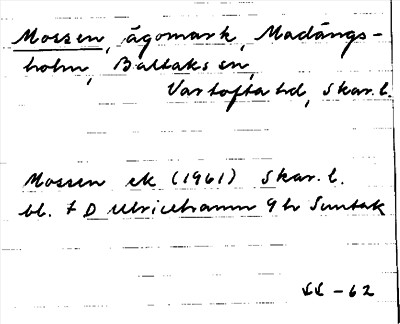 Mossen, ägomark, Madängs-
holm, Baltaks sn,
Vartofta hd, Skar. l.
Mossen ek (1961) Skar. l.
bl. 7 D Ulricehamn 9 h Suntak
-62